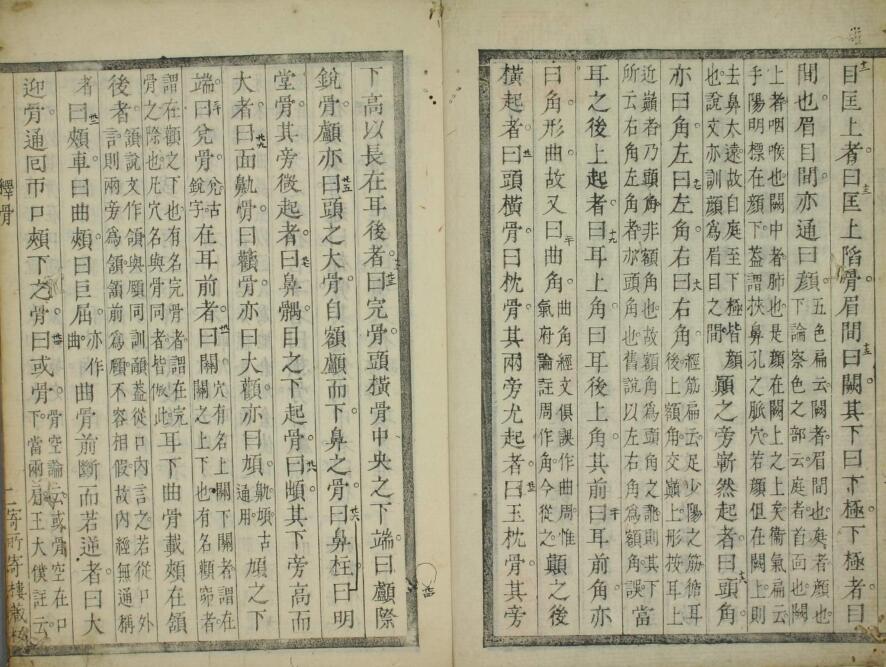 目匡上者曰匡上陷骨眉間曰闕其下曰下極下極者曰
間也眉目間亦通曰顏五色扁云闕者眉間也庭者顏也
下論察色之部云庭者首面也闕
上者咽喉也闕中者肺也是顏在闕上之上矣衞氣扁云
手陽明標在顏下蓋謂挾鼻孔之脈穴若顏但在闕上則
去鼻太遠故自庭至下極皆顏
也說文亦訓顏爲眉目之間顚之旁嶄然起者曰頭角
亦曰角左曰左角右曰右角經筋扁云足少陽之筋循耳
後上額角交巓上形按耳上
近巓者乃頭角非額角也故額角爲頭角之訛則其下
所云右角左角者亦頭角也舊說以左右角爲額角誤當
耳之後上起者曰耳上角曰耳後上角其前曰耳前角亦
曰角形曲故又曰曲角曲角經文俱誤作曲周惟
氣府論註周作角今從之顚之後
橫起者曰頭橫骨曰枕骨其兩旁尤起者曰玉枕骨其旁
下高以長在耳後者曰完骨頭橫骨中央之下端曰顱際
銳骨顱亦曰頭之大骨自額顱而下鼻之骨曰鼻柱曰明
堂骨其旁微起者曰鼻髃目之下起骨曰䪼其下旁高而
大者曰面鼽骨曰顴骨亦曰大顴亦曰頄鼽頄古
通用頄之下
端曰兊骨兊古
銳字在耳前者曰關穴有名上關下關者謂在
關之上下也有名顴窌者
謂在顴之下也有名完骨者謂在完
骨之際也凡穴名與骨同者皆倣此耳下曲骨載頰在頷
後者頷說文作顄與頤同訓顄蓋從口內言之若從口外
言則兩旁爲頷頷前爲頤不容相假故內經無通稱
者曰頰車曰曲頰曰巨屈亦作
曲曲骨前斷而若逆者曰大
迎骨通回帀口頰下之骨曰或骨骨空論云或骨空在口
下當兩肩王大僕註云
釋骨
二寄所寄樓藏板